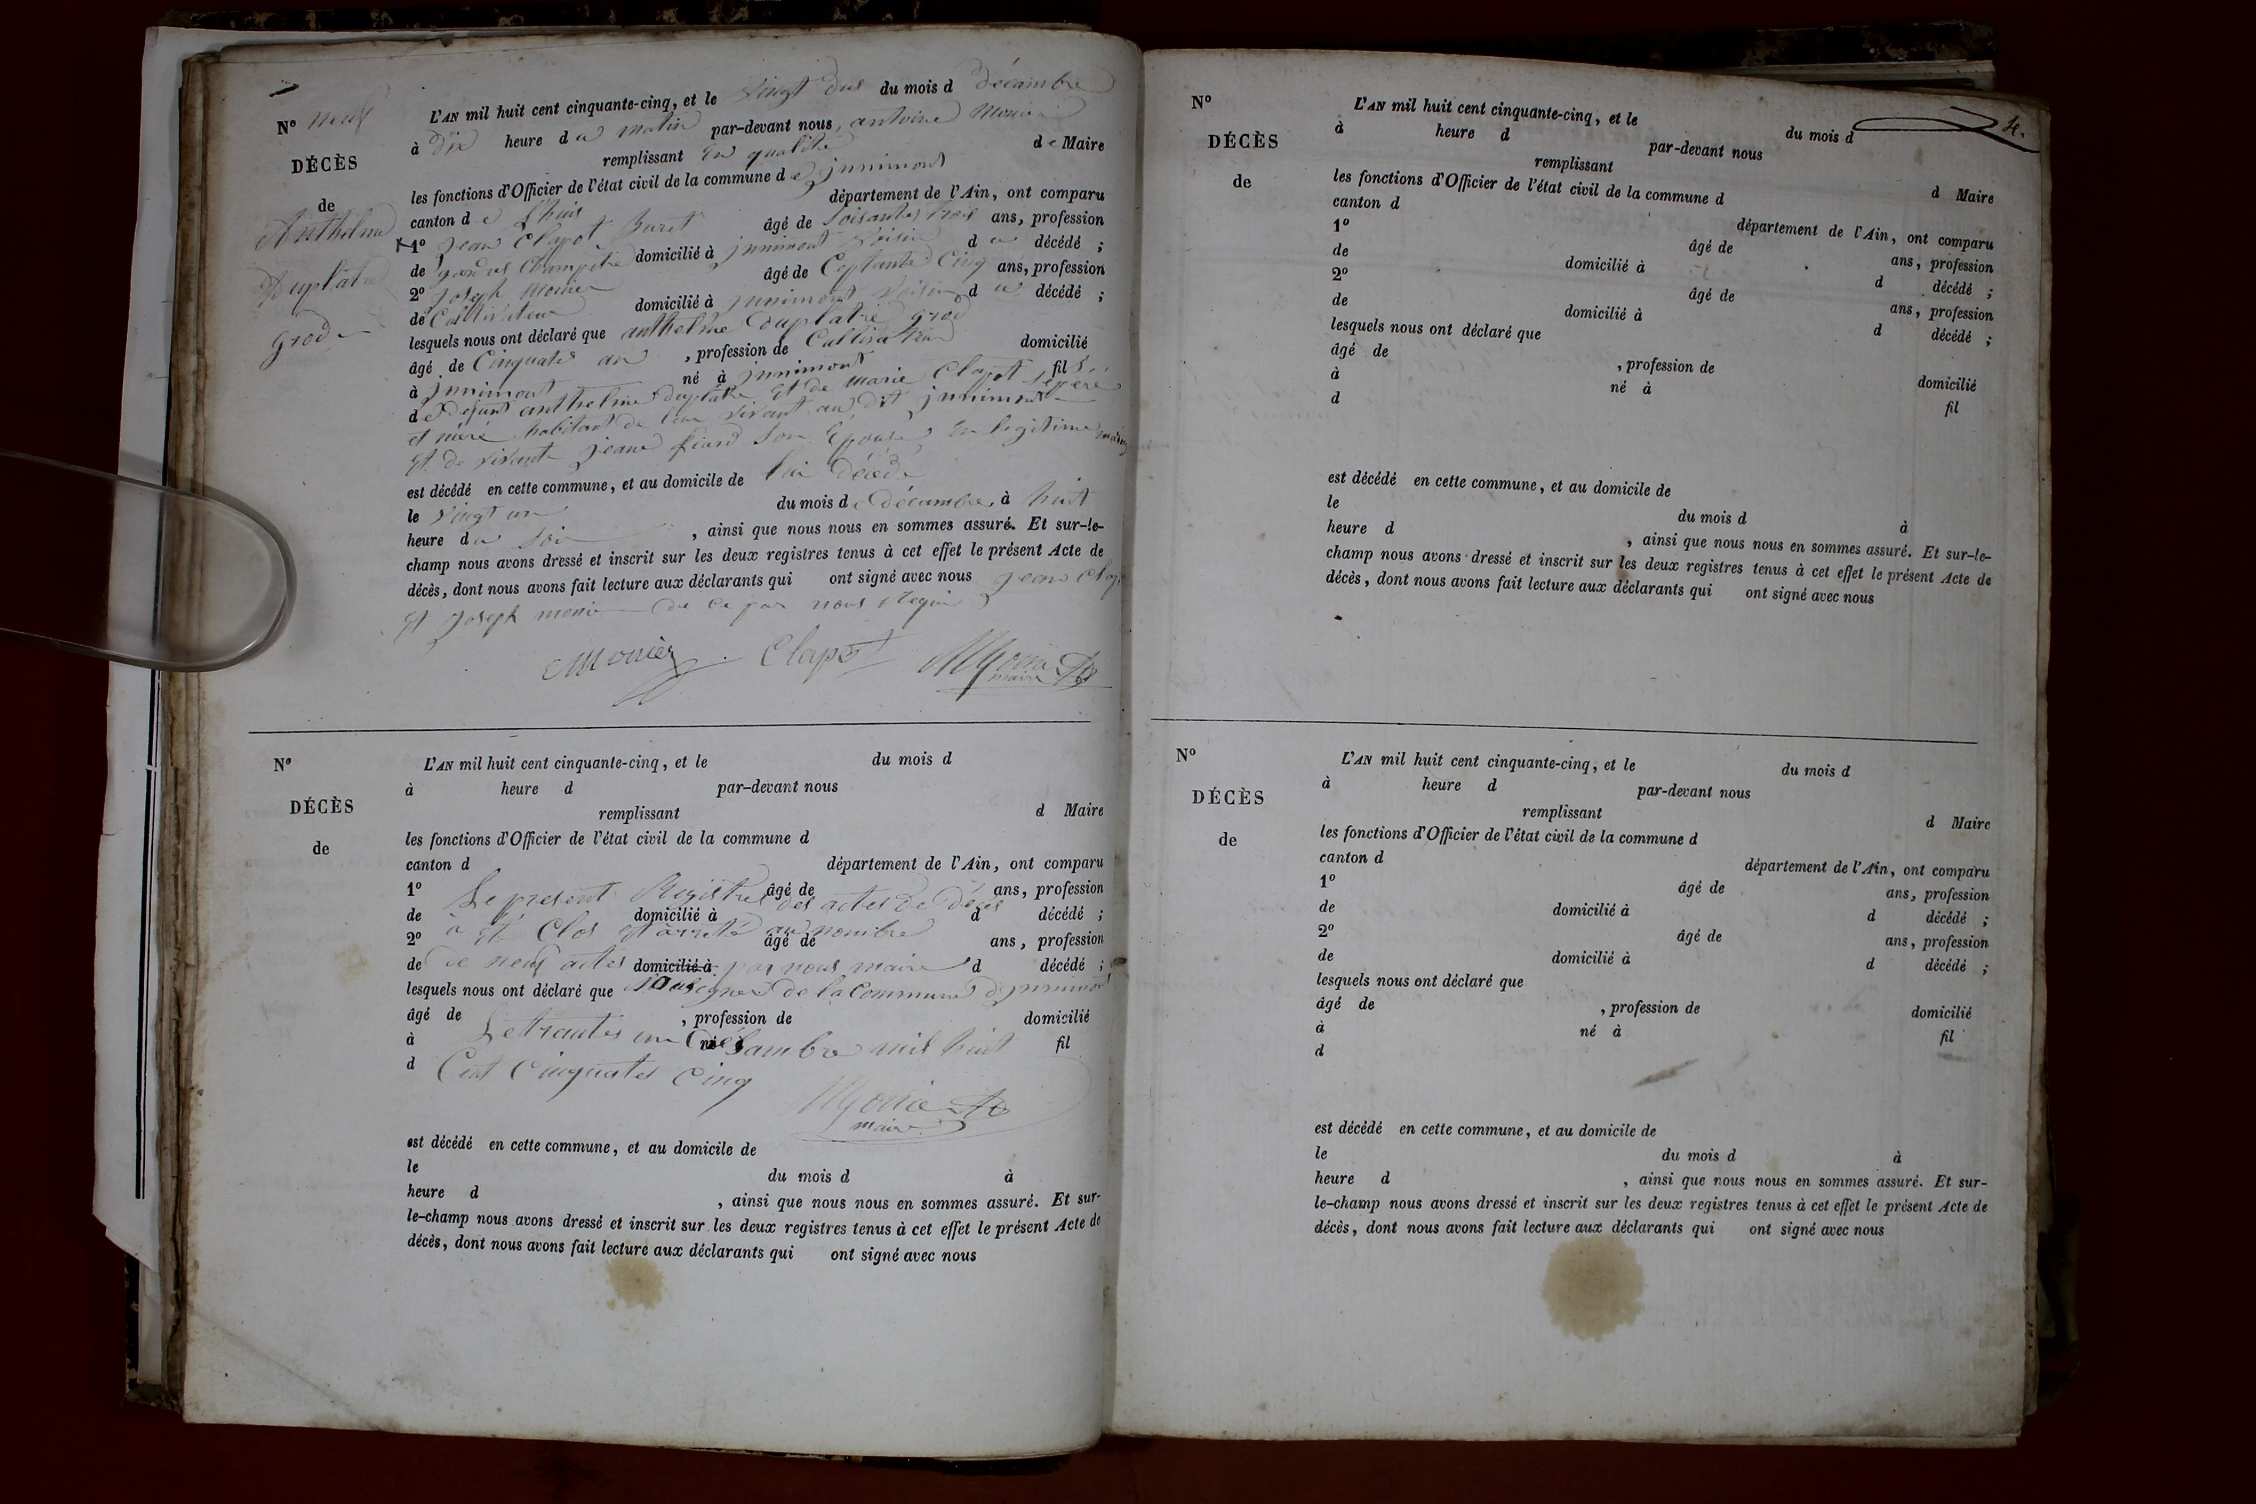 N° neuf
DÉCÈS
de
Anthelme
Duplatre
grod
L'AN mil huit cent cinquante-cinq, et le vingt dus du mois d décambre
à dix heure du matin par-devant nous, antoine Monier
remplissant en qualité de Maire
les fonctions d'Officier de l'état civil de la commune de jnnimont
canton de Lhuis département de l'Ain, ont comparu
1° jean Clapot âgé de soisantes trois ans, profession
de gardes Champetre domicilié à jnnimont voisin du décédé ;
2° joseph monier âgé de Ceptante Cinq ans, profession
de Coltivateur domicilié à jnnimont voisin du décédé ;
lesquels nous ont déclaré que anthelme duplatre grod
âgé de Cinquates an , profession de Cultivateur domicilié
à jnnimont né à jnnimont fils
de defunt anthelme duplatre et de marie Clapot
et méré habitant de leur vivant au dit jnnimont
et de vivante jeane son Epouse en legitime
est décédé en cette commune, et au domicile de lui décédé
le vingt un du mois de décambre à huit
heure du soir , ainsi que nous nous en sommes assuré. Et sur-le-
champ nous avons dressé et inscrit sur les deux registres tenus à cet effet le présent Acte de
décès, dont nous avons fait lecture aux déclarants qui ont signé avec nous jean Clapot
et joseph monier de ce par nous Requis
Monier Clapot Monier
maire
N°
DÉCÈS
de
L'AN mil huit cent cinquante-cinq, et le du mois d
à heure d par-devant nous
remplissant d Maire
les fonctions d'Officier de l'état civil de la commune d
canton d département de l'Ain, ont comparu
1° âgé de ans, profession
Le present Registre des actes de décès
de domicilié à d décédé ;
à été Clos et arreté au nombre
2° âgé de ans, profession
de de neuf actes domicilié à par nous maire d décédé ;
lesquels nous ont déclaré que sousigner de la Commune d jnnimont
âgé de , profession de domicilié
à Le trantes un Désambre mil huit né à fil
d Cent Cinquates Cinq
Monier
maire
est décédé en cette commune, et au domicile de
le du mois d à
heure d , ainsi que nous nous en sommes assuré. Et sur-
le-champ nous avons dressé et inscrit sur les deux registres tenus à cet effet le présent Acte de
décès, dont nous avons fait lecture aux déclarants qui ont signé avec nous
4.
N°
DÉCÈS
de
L'AN mil huit cent cinquante-cinq, et le du mois d
à heure d par-devant nous
remplissant d Maire
les fonctions d'Officier de l'état civil de la commune d
canton d département de l'Ain, ont comparu
1° âgé de ans, profession
de domicilié à d décédé ;
2° âgé de ans, profession
de domicilié à d décédé ;
lesquels nous ont déclaré que
âgé de , profession de domicilié
à né à fil
d
est décédé en cette commune, et au domicile de
le du mois d à
heure d , ainsi que nous nous en sommes assuré. Et sur-le-
champ nous avons dressé et inscrit sur les deux registres tenus à cet effet le présent Acte de
décès, dont nous avons fait lecture aux déclarants qui ont signé avec nous
N°
DÉCÈS
de
L'AN mil huit cent cinquante-cinq, et le du mois d
à heure d par-devant nous
remplissant d Maire
les fonctions d'Officier de l'état civil de la commune d
canton d département de l'Ain, ont comparu
1° âgé de ans, profession
de domicilié à d décédé ;
2° âgé de ans, profession
de domicilié à d décédé ;
lesquels nous ont déclaré que
âgé de , profession de domicilié
à né à fil
d
est décédé en cette commune, et au domicile de
le du mois d à
heure d , ainsi que nous nous en sommes assuré. Et sur-
le-champ nous avons dressé et inscrit sur les deux registres tenus à cet effet le présent Acte de
décès, dont nous avons fait lecture aux déclarants qui ont signé avec nous